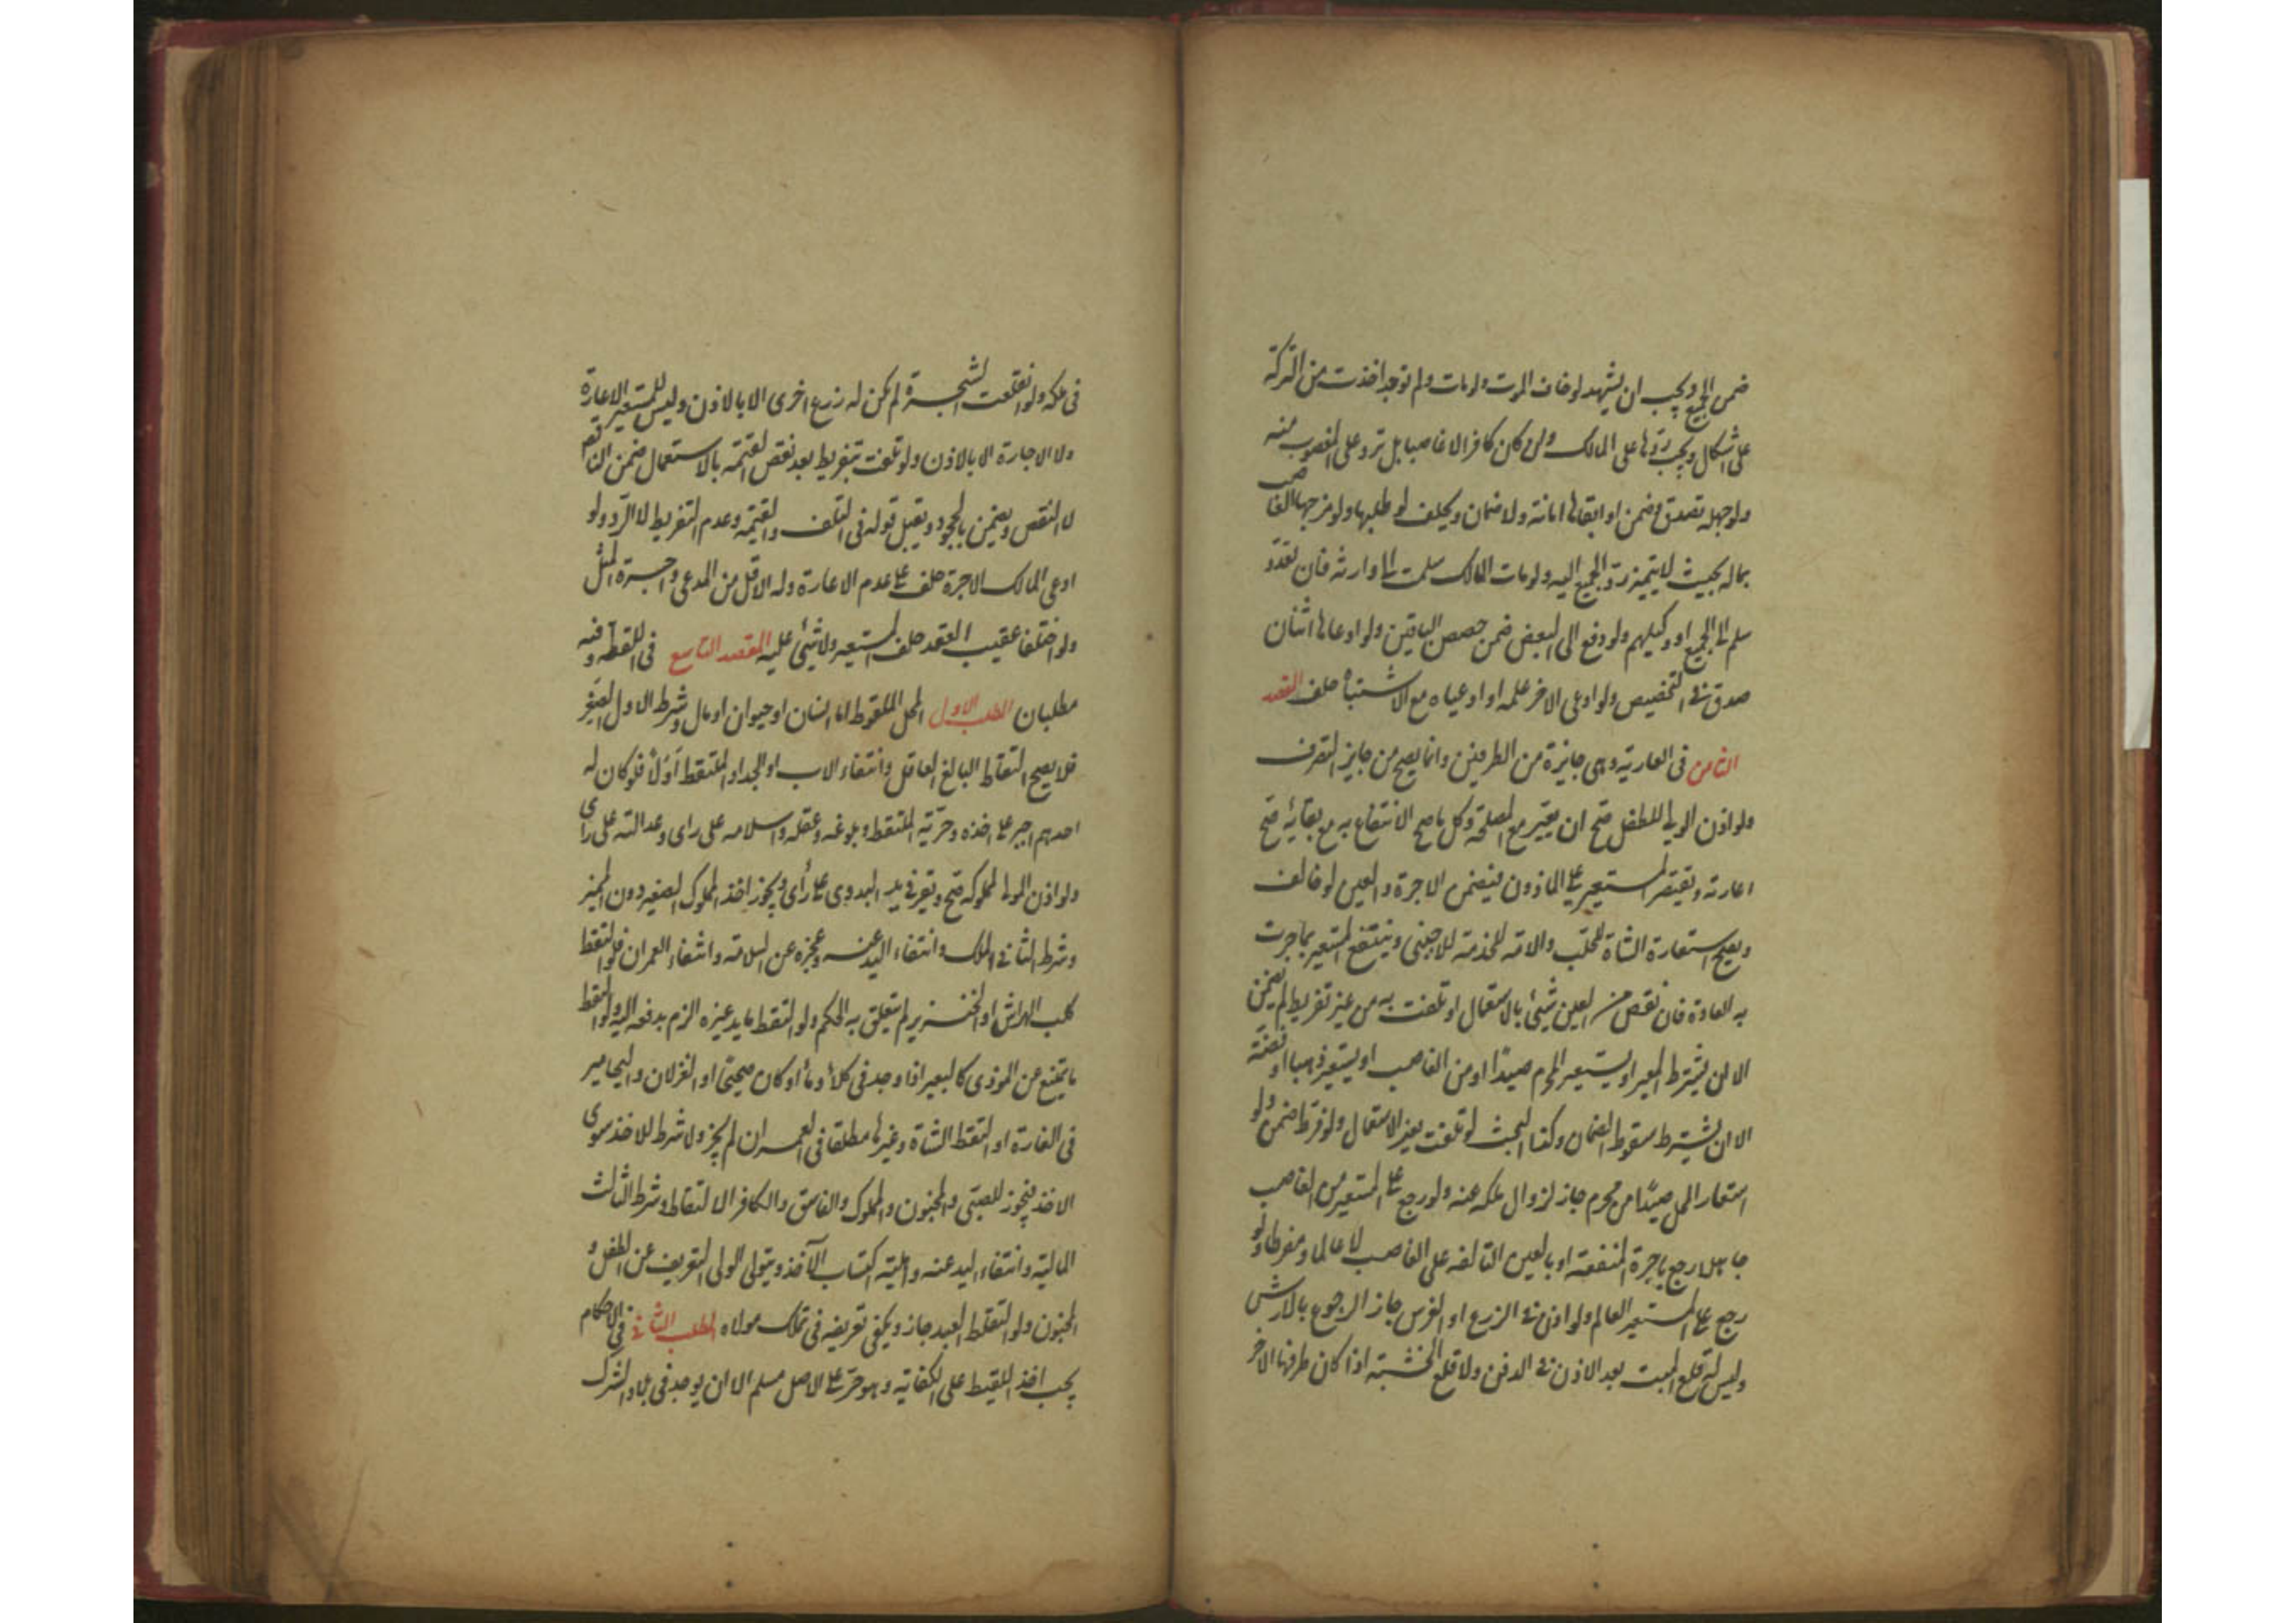 ضمن الجميع ويجب ان يشهد لو خاف الموت ولو مات ولم توجد اخذت من التركة
على اشكال ويجب ردها على المالك وان كان كافرا لا غاصبا بل ترد على المغصوب منه
ولو جهله تصدق وضمن او ابقاها امانة ولا ضمان ويحلف لو طلبها ولو مزجها الغاصب
بماله بحيث لا يتميز رد الجميع اليه ولو مات المالك سلمت الى وارثه فان تعدد
سلم الى الجميع او وكيلهم ولو دفع الى البعض ضمن حصص الباقين ولو ادعاها اثنان
صدق في التخصيص ولو ادعى الاخر علمه او ادعياه مع الاشتباه حلف المقصد
الثامن في العارية وهي جايزة من الطرفين وانما يصح من جايز التصرف
ولو اذن الولي للطفل صح ان يعير مع المصلحة وكل ما صح الانتفاع به مع بقائه صح
اعارته ويقتصر المستعير على الماذون فيضمن الاجرة والعين لو خالف
ويصح استعارة الشاة للحلب والامة للخدمة للاجنبي وينتفع المستعير بما جرت
به العادة فان نقص من العين شيئ بالاستعمال او تلفت به من غير تفريط لم يضمن
الا ان يشترط المعير او يستعير المحرم صيدا او من الغاصب او يستعير ذهبا او فضة
الا ان يشترط سقوط الضمان وكذا البحث لو تلفت بغير الاستعمال ولو فرط ضمن ولو
استعار المحل صيدا من محرم جاز لزوال ملكه عنه ولو رجع على المستعير من الغاصب
جاهلا رجع باجرة المنفعة او بالعين التالفه على الغاصب لا عالما ومفرطا ولو
رجع على المستعير العالم ولو اذن في الزرع او الغرس جاز الرجوع بالارش
وليس له قلع الميت بعد الاذن في الدفن ولا قلع الخشبة اذا كان طرفها الاخر
في ملكه ولو انقلعت الشجرة لم يكن له زرع اخرى الا بالاذن وليس للمستعير الاعارة
ولا الاجارة الا بالاذن ولو تلفت بتفريط بعد نقص القيمة بالاستعمال ضمن الناقص
لا النقص ويضمن بالجحود ويقبل قوله في التلف والقيمة وعدم التفريط لا الرد ولو
ادعى المالك الاجرة حلف على عدم الاعارة وله الاقل من المدعى واجرة المثل
ولو اختلفا عقيب العقد حلف المستعير ولا شيئ عليه المقصد التاسع في اللقطه وفيه
مطلبان المطلب الاول المحل الملقوط اما انسان او حيوان او مال وشرط الاول الصغر
فلا يصح التقاط البالغ العاقل وانتفاء الاب او الجد او الملتقط اولا فلو كان له
احدهم اجبر على اخذه وحرية الملتقط وبلوغه وعقله واسلامه على راى وعدالته على راى
ولو اذن المولى لمملوكه صح ويقر في يد البدوى على رأى ويجوز اخذ المملوك الصغير دون المميز
وشرط الثاني الملك وانتفاء اليد عنه وعجزه عن السلامة وانتفاء العمران فلو التقط
كلب الهراش او الخنزير لم يتعلق به الحكم ولو التقط ما بيد غيره الزم بدفعه اليه ولو التقط
ما يمتنع من الموذى كالبعير اذا وجد في كلأ وماء او كان صحيحا او الغزلان واليحامير
في الفازة او التقط الشاة وغيرها مطلقا في العمران لم يجز ولا شرط للاخذ سوى
الاخذ فيجوز للصبي والمجنون والمملوك والفاسق والكافر الالتقاط وشرط الثالث
المالية وانتفاء اليد عنه واهلية اكتساب الآخذ ويتولى الولى التعريف عن الطفل و
المجنون ولو التقط العبد جاز ويكفى تعريفه في تملك مولاه المطلب الثاني في الاحكام
يجب اخذ اللقيط على الكفاية وهو حر على الاصل مسلم الا ان يوجد في بلاد الشرك